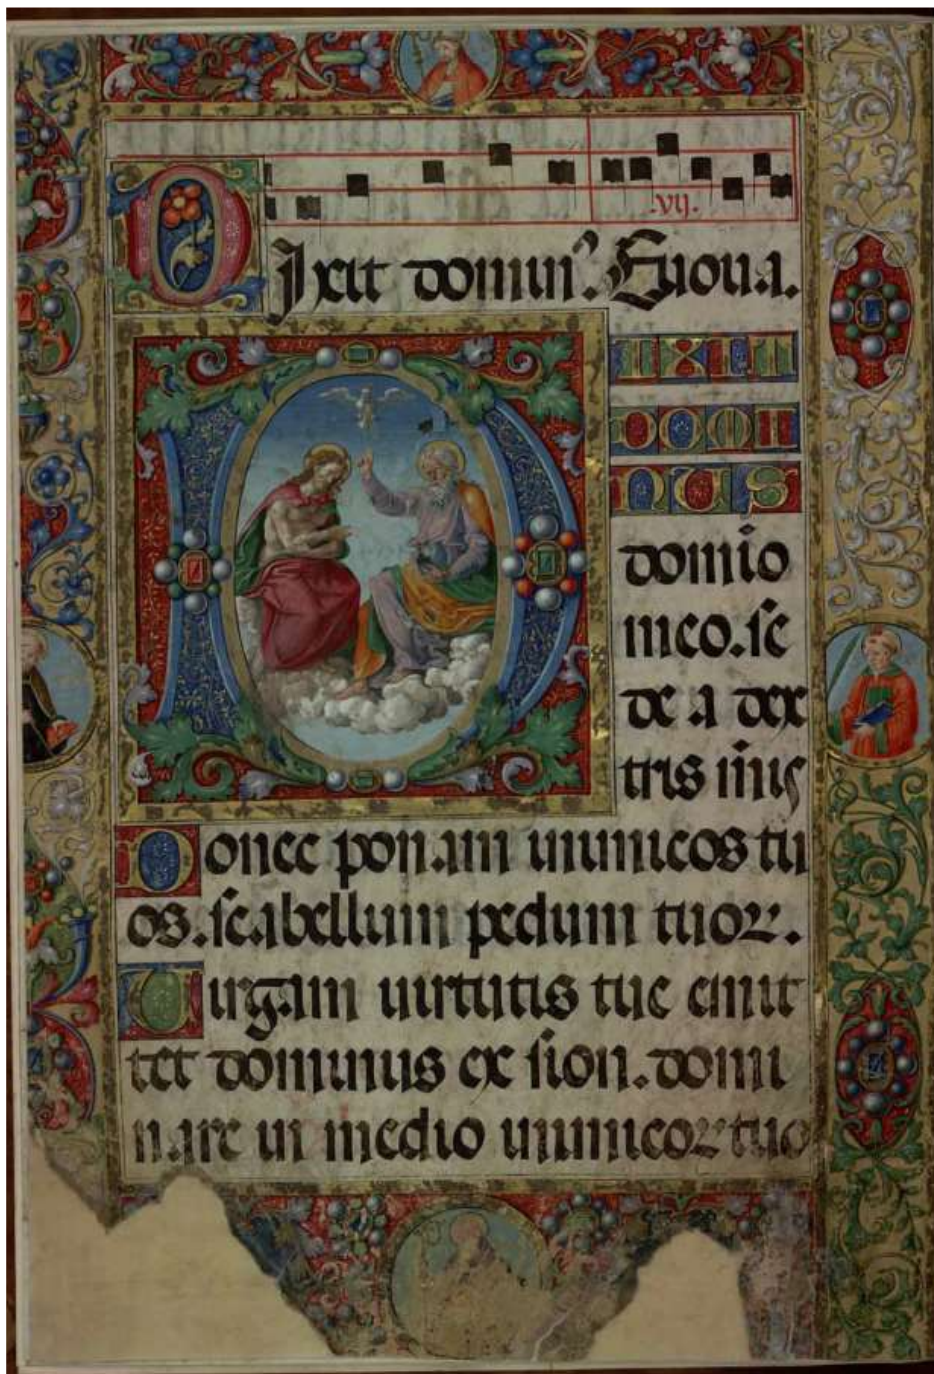 Dixit dominꝰ. Euoua.
.vij.
DIXIT
DOMI
NUS
domīo
meo. se
de a dex
tris meis
Donec ponam inimicos tu
os. scabellum pedum tuoꝝ.
Uirgam uirtutis tue emit
tet dominus ex sion. domi
nare in medio inimicoꝝ tuo